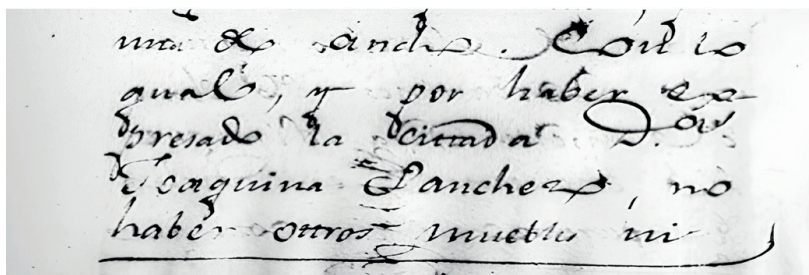 una de ancho. Con lo
qual, y por haber ex-
presado la cittada D.ª
Joaquina Sanchez, no
haber ottros muebles ni